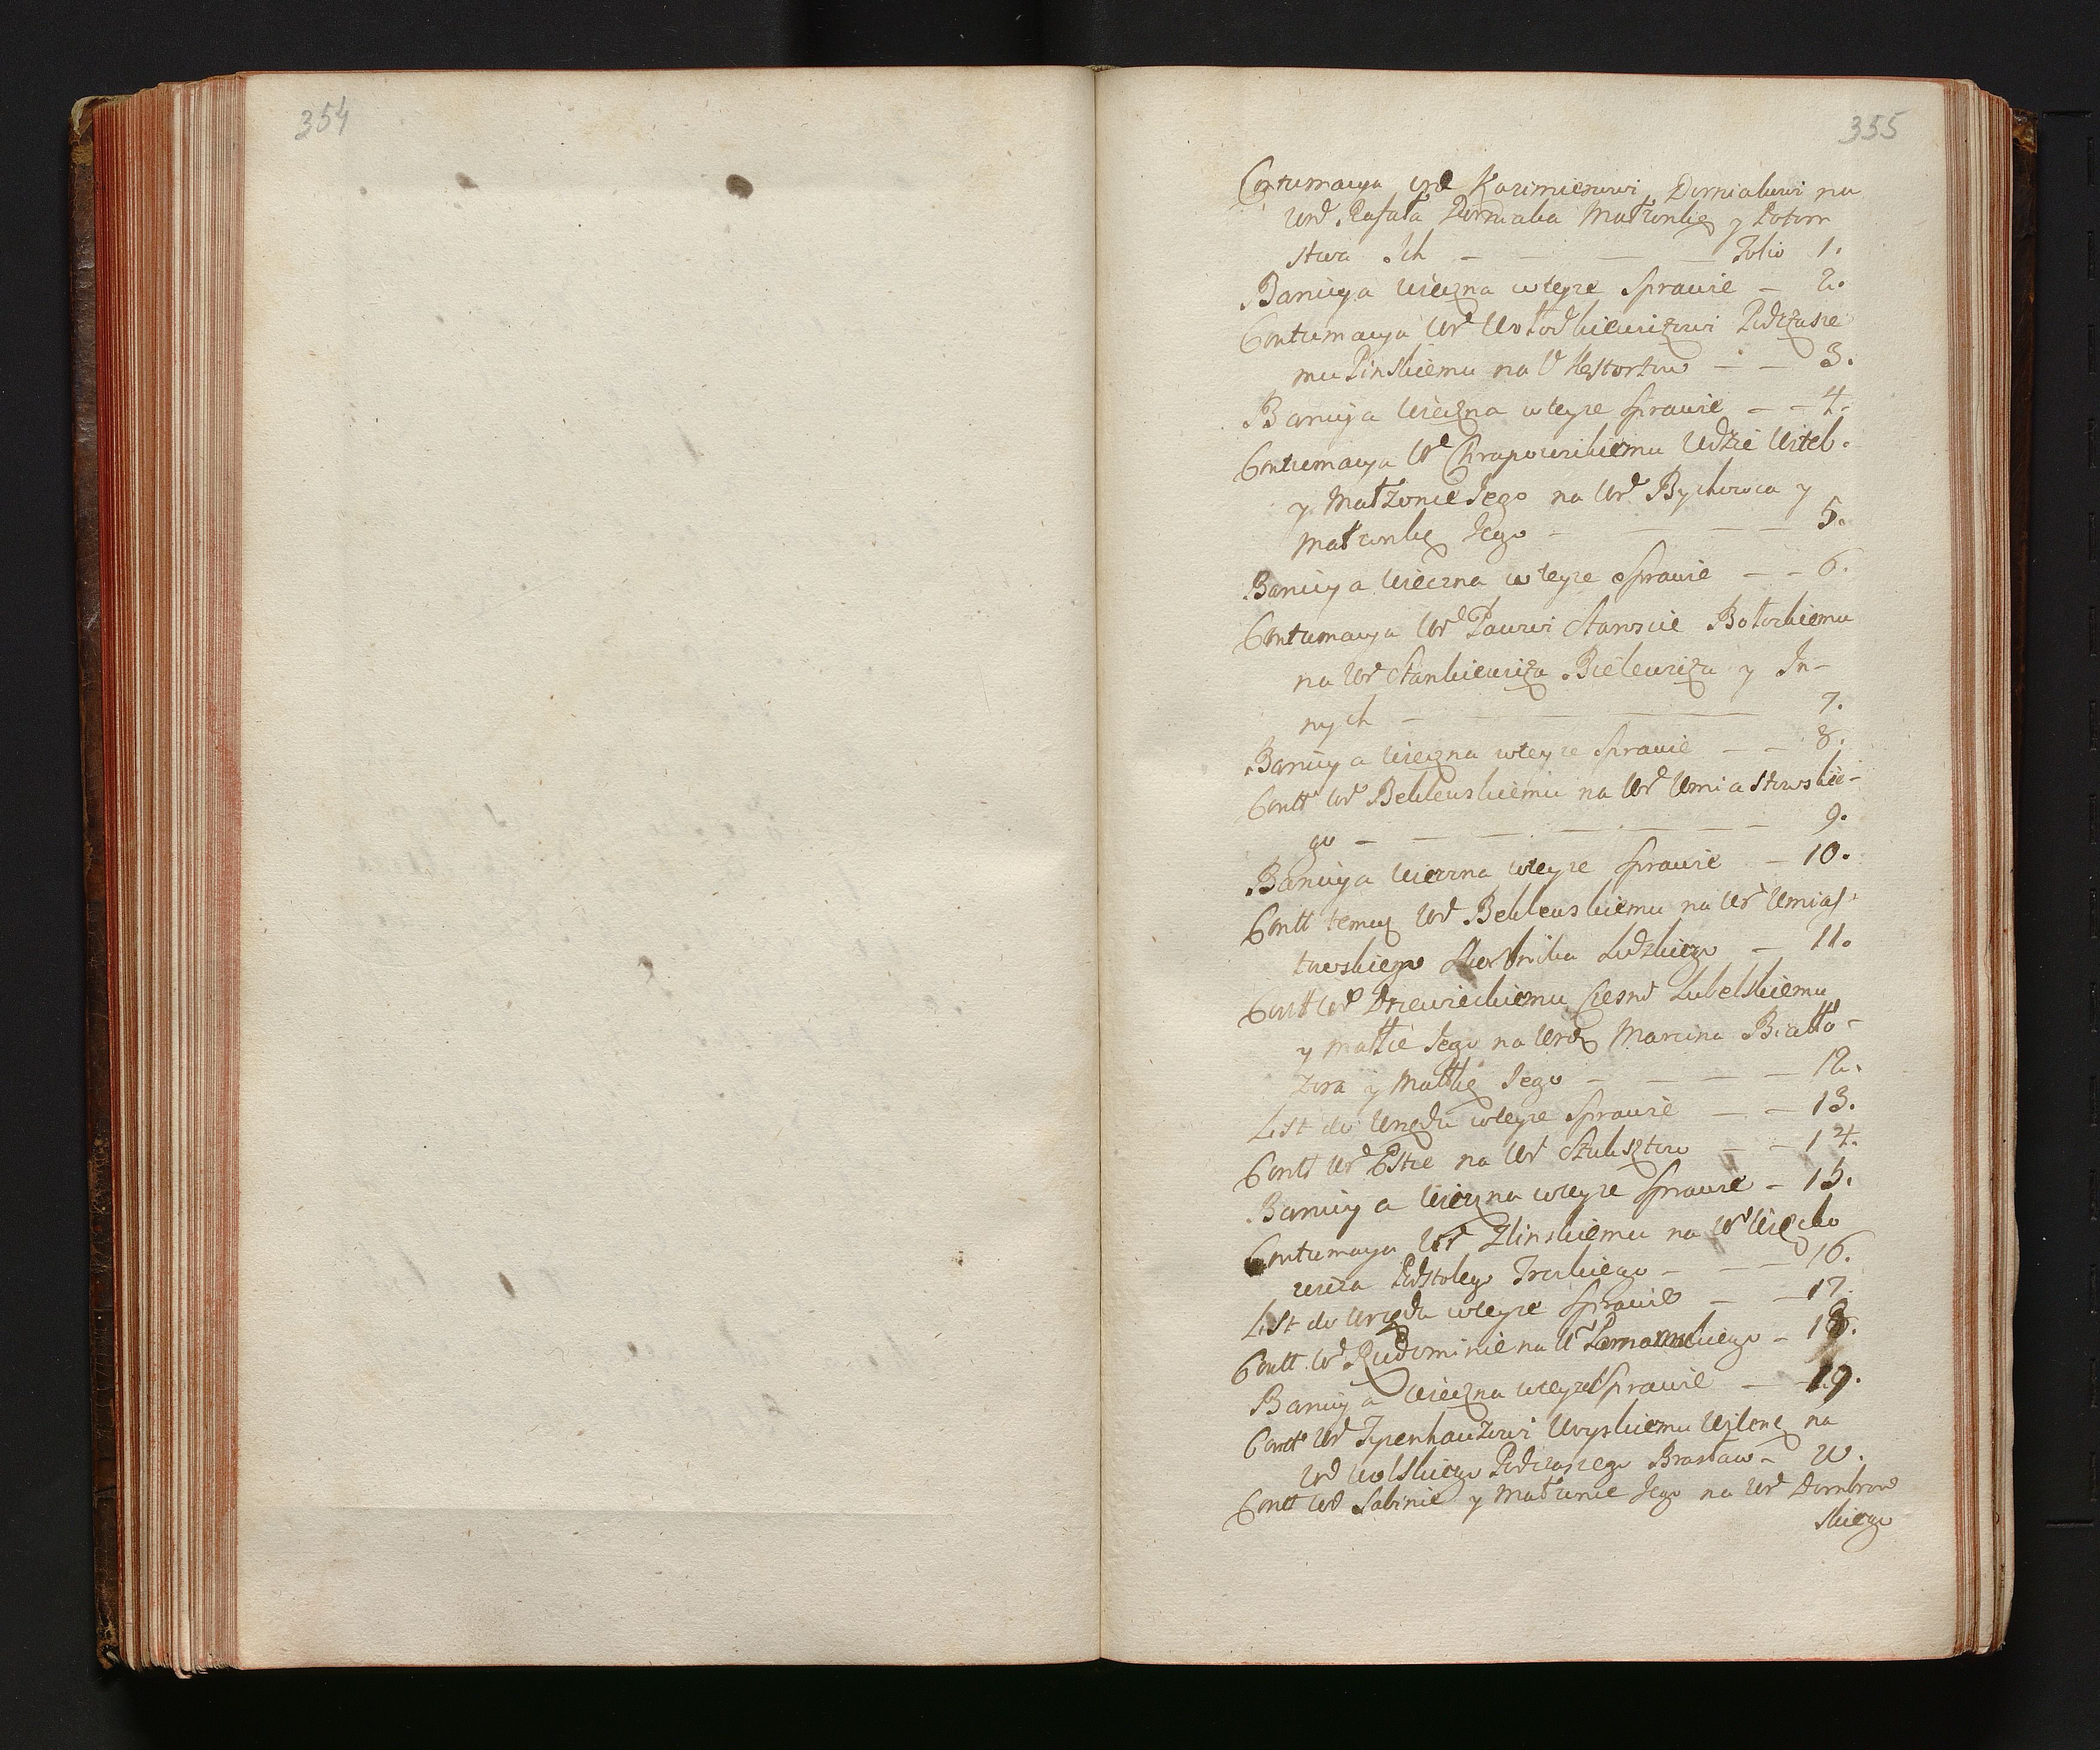 354
355
Contumacya Urd Kazimierzowi Dorniakowi na
Urd Rafała Dorniaka Małżonkę y Potom
stwa Ich — — — — Folio 1.
Banicya Wieczna w teyze Sprawie — 2.
Contumacya Urd Wołodkiewiczowi Podczasze
mu Pinskiemu na U Kęstortow — — 3.
Banicya Wieczna w teyze Sprawie — — 4.
Contumacya Urd Chrapowickiemu Wdzie Witeb.
y Małżonie Jego na Urd Bychowca y
Małzonkę Jego — — — 5.
Banicya Wieczna w teyze Sprawie — — 6.
Contumacya Urd Pacowi Staroscie Bołockiemu
na Urd Stankiewicza Bielewicza y In-
nych — — — — — 7.
Banicya Wieczna w teyze Sprawie — — 8.
Contt Urd Beklewskiemu na Urd Umiastowskie-
go — — — — — — — 9.
Banicya Wieczna w teyze Sprawie — 10.
Contt temuz Urd Beklewskiemu na Urd Umias-
towskiego Skarbnika Lidzkiego — 11.
Contt Urd Drzewieckiemu Czesni Lubelskiemu
y Małżie Jego na Urdz Marcina Białło-
zora y Małłkę Jego — — — — 12.
List do Urzędu w teyze Sprawie — — 13.
Contt Urd Estce na Urd Szuksztow — — 14.
Banicya Wieczna w teyze Sprawie — 15.
Contumacya Urd Zlinskiemu na Urd Więcko
wicza Podstolego Trockiego — — — 16.
List do Urzędu w teyze Sprawie — — 17.
Contt Urd Rudominie na U — 18.
Banicya Wieczna w teyze Sprawie — — 19.
Contt Urd Tyzenhauzowi Woyskiemu Wilenę na
Urd Wolskiego Podczaszego Brasław — 20.
Contt Urd Sabinie y Małzonie Jego na Urd Dombrow
skiego